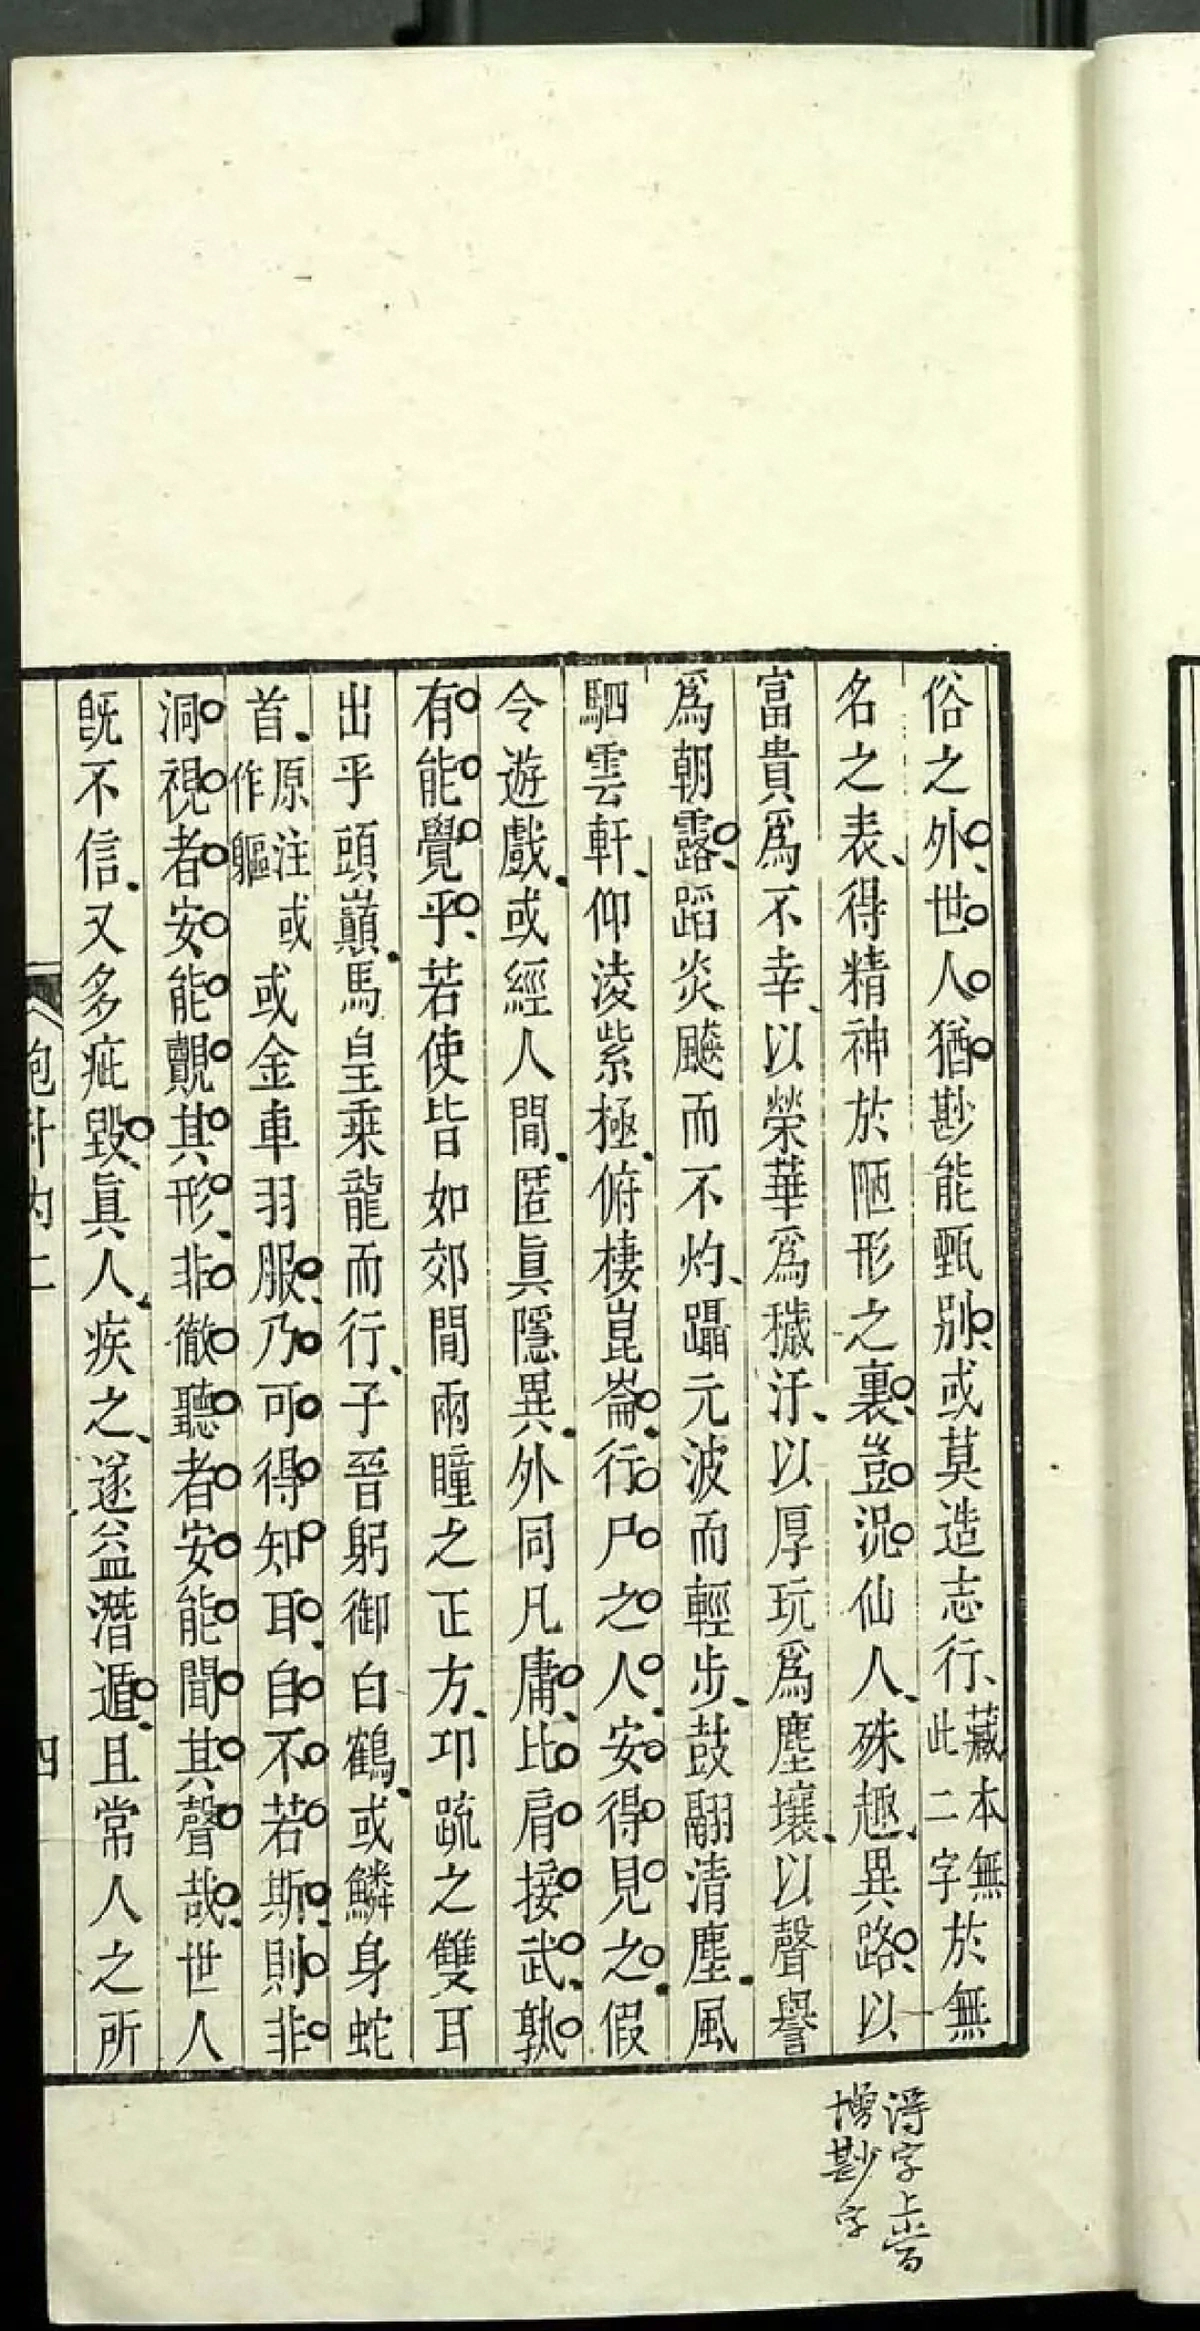 俗之外、世人猶尠能甄别、或莫造志行、藏本無此二字於無
名之表、得精神於陋形之裏、豈況仙人、殊趣異路、以
富貴爲不幸、以榮華爲穢汙、以厚玩爲塵壤、以聲譽
爲朝露、蹈炎飈而不灼、躡元波而輕步、鼓翮清塵、風
駟雲軒、仰淩紫極、俯棲崑崙、行尸之人、安得見之、假
令遊戲、或經人閒、匿眞隱異、外同凡庸、比肩接武、孰
有能覺乎、若使皆如郊閒兩瞳之正方、邛疏之雙耳
出乎頭巔、馬皇乘龍而行、子晉躬御白鶴、或鱗身蛇
首、原注或作軀或金車羽服、乃可得知耳、自不若斯、則非
洞視者安能覿其形、非徹聽者安能聞其聲哉、世人
旣不信、又多疵毀、眞人疾之、遂益潛遁、且常人之所
四
得字上當
增尠字